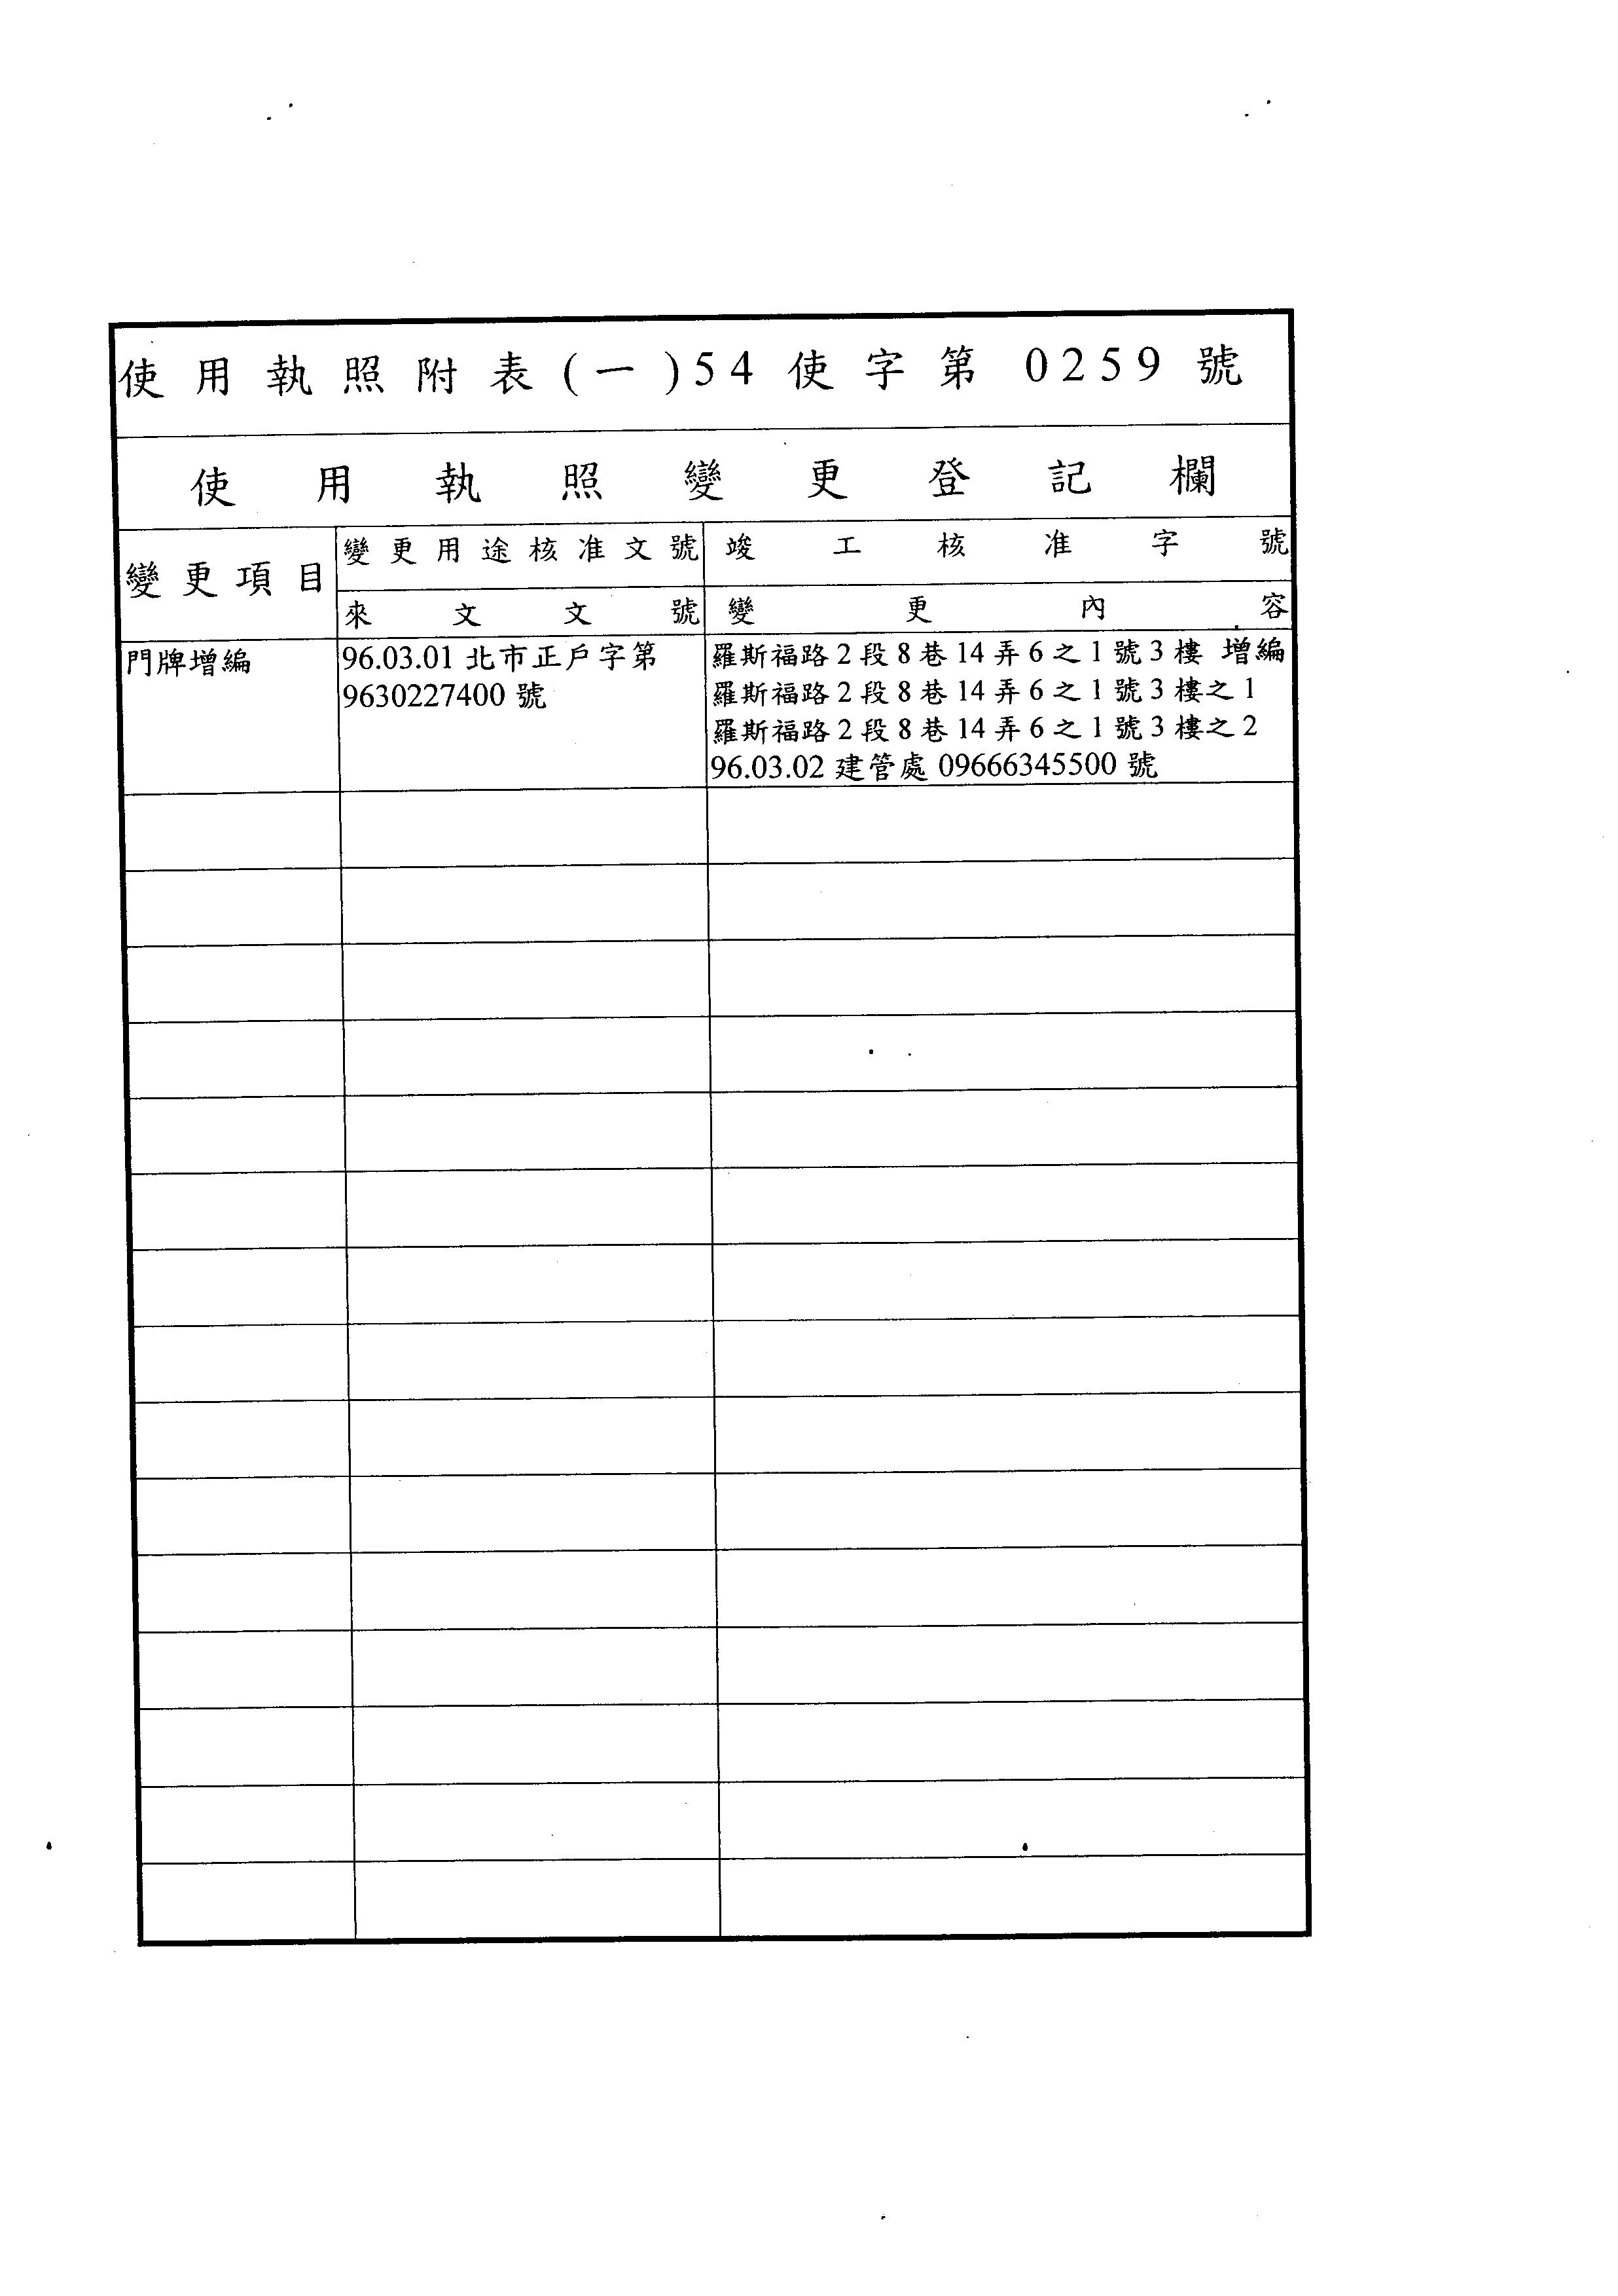 使用執照附表(一)54使字第 0259 號
使用執照變更登記欄
變更項目
變更用途核准文號
竣工核准字號
來文文號
變更內容
門牌增編
96.03.01 北市正戶字第
9630227400 號
羅斯福路2段8巷14弄6之1號3樓 增編
羅斯福路2段8巷14弄6之1號3樓之1
羅斯福路2段8巷14弄6之1號3樓之2
96.03.02 建管處 09666345500 號